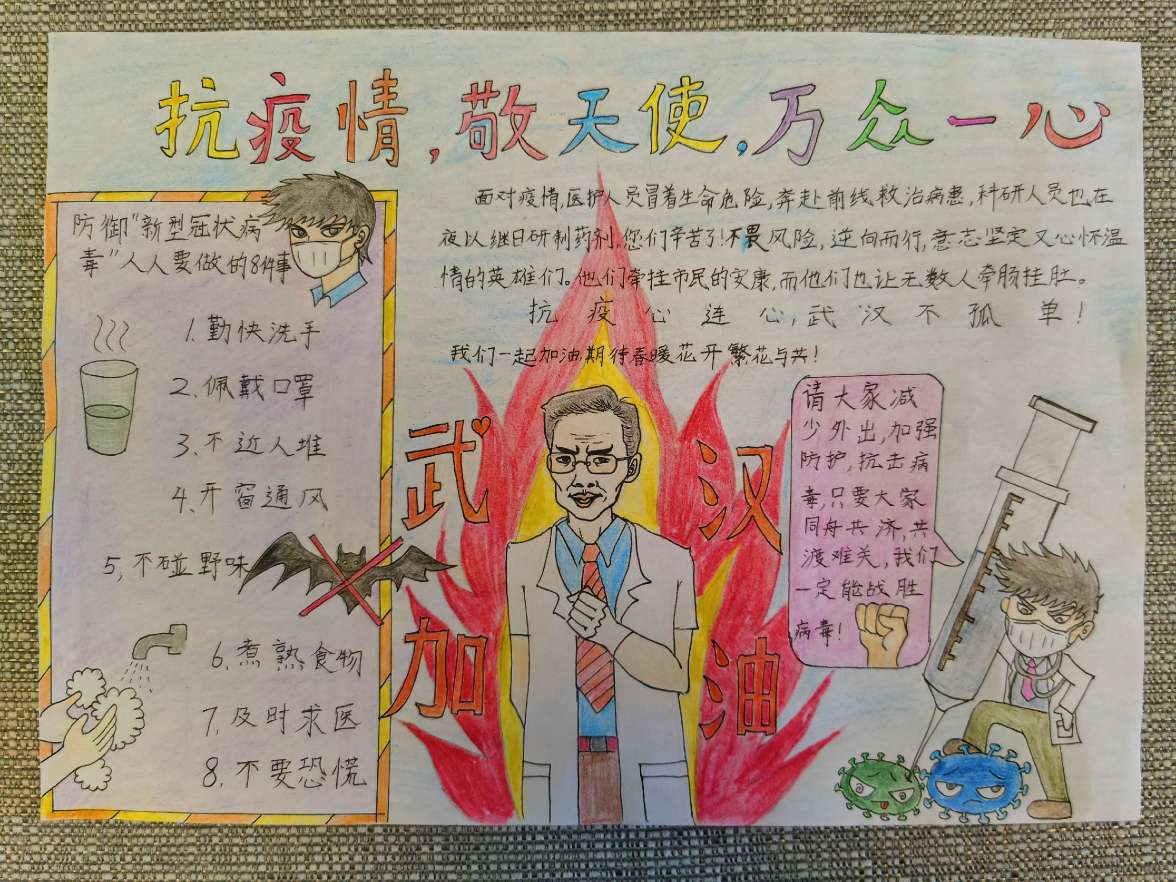 抗疫情,敬天使,万众一心
面对疫情,医护人员冒着生命危险,奔赴前线救治病患,科研人员也在
夜以继日研制药剂,您们辛苦了!不畏风险,逆向而行,意志坚定又心怀温
情的英雄们。他们牵挂市民的安康,而他们也让无数人牵肠挂肚。
抗疫心连心,武汉不孤单!
我们一起加油,期待春暖花开繁花与共!
防御“新型冠状病
毒”人人要做的8件事
1.勤快洗手
2.佩戴口罩
3.不近人堆
4.开窗通风
5,不碰野味
6.煮熟食物
7.及时求医
8.不要恐慌
武汉
加油
请大家减
少外出,加强
防护,抗击病
毒,只要大家
同舟共济,共
渡难关,我们
一定能战胜
病毒!